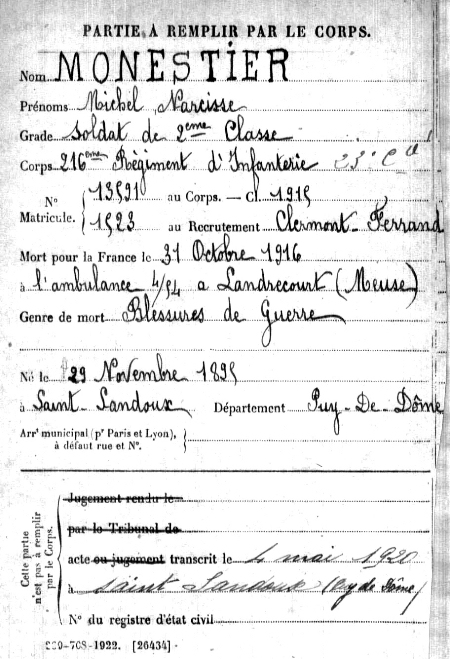 PARTIE À REMPLIR PAR LE CORPS.
Nom MONESTIER
Prénoms Michel Narcisse
Grade Soldat de 2eme Classe
Corps 216eme Régiment d'Infanterie 23e Cie
N° Matricule. { 13591 au Corps. — Cl. 1915
1523 au Recrutement Clermont-Ferrand
Mort pour la France le 31 Octobre 1916
à l'ambulance 4/54 a Landrecourt (Meuse)
Genre de mort Blessures de Guerre
Né le 29 Novembre 1895
à Saint-Sandoux Département Puy-De-Dôme
Arrt municipal (pr Paris et Lyon),
à défaut rue et N°.
Cette partie n'est pas à remplir par le Corps.
Jugement rendu le
par le Tribunal de
acte ou jugement transcrit le 4 mai 1920
à Saint Sandoux (Puy de Dôme)
N° du registre d'état civil
-708-1922. [26434]